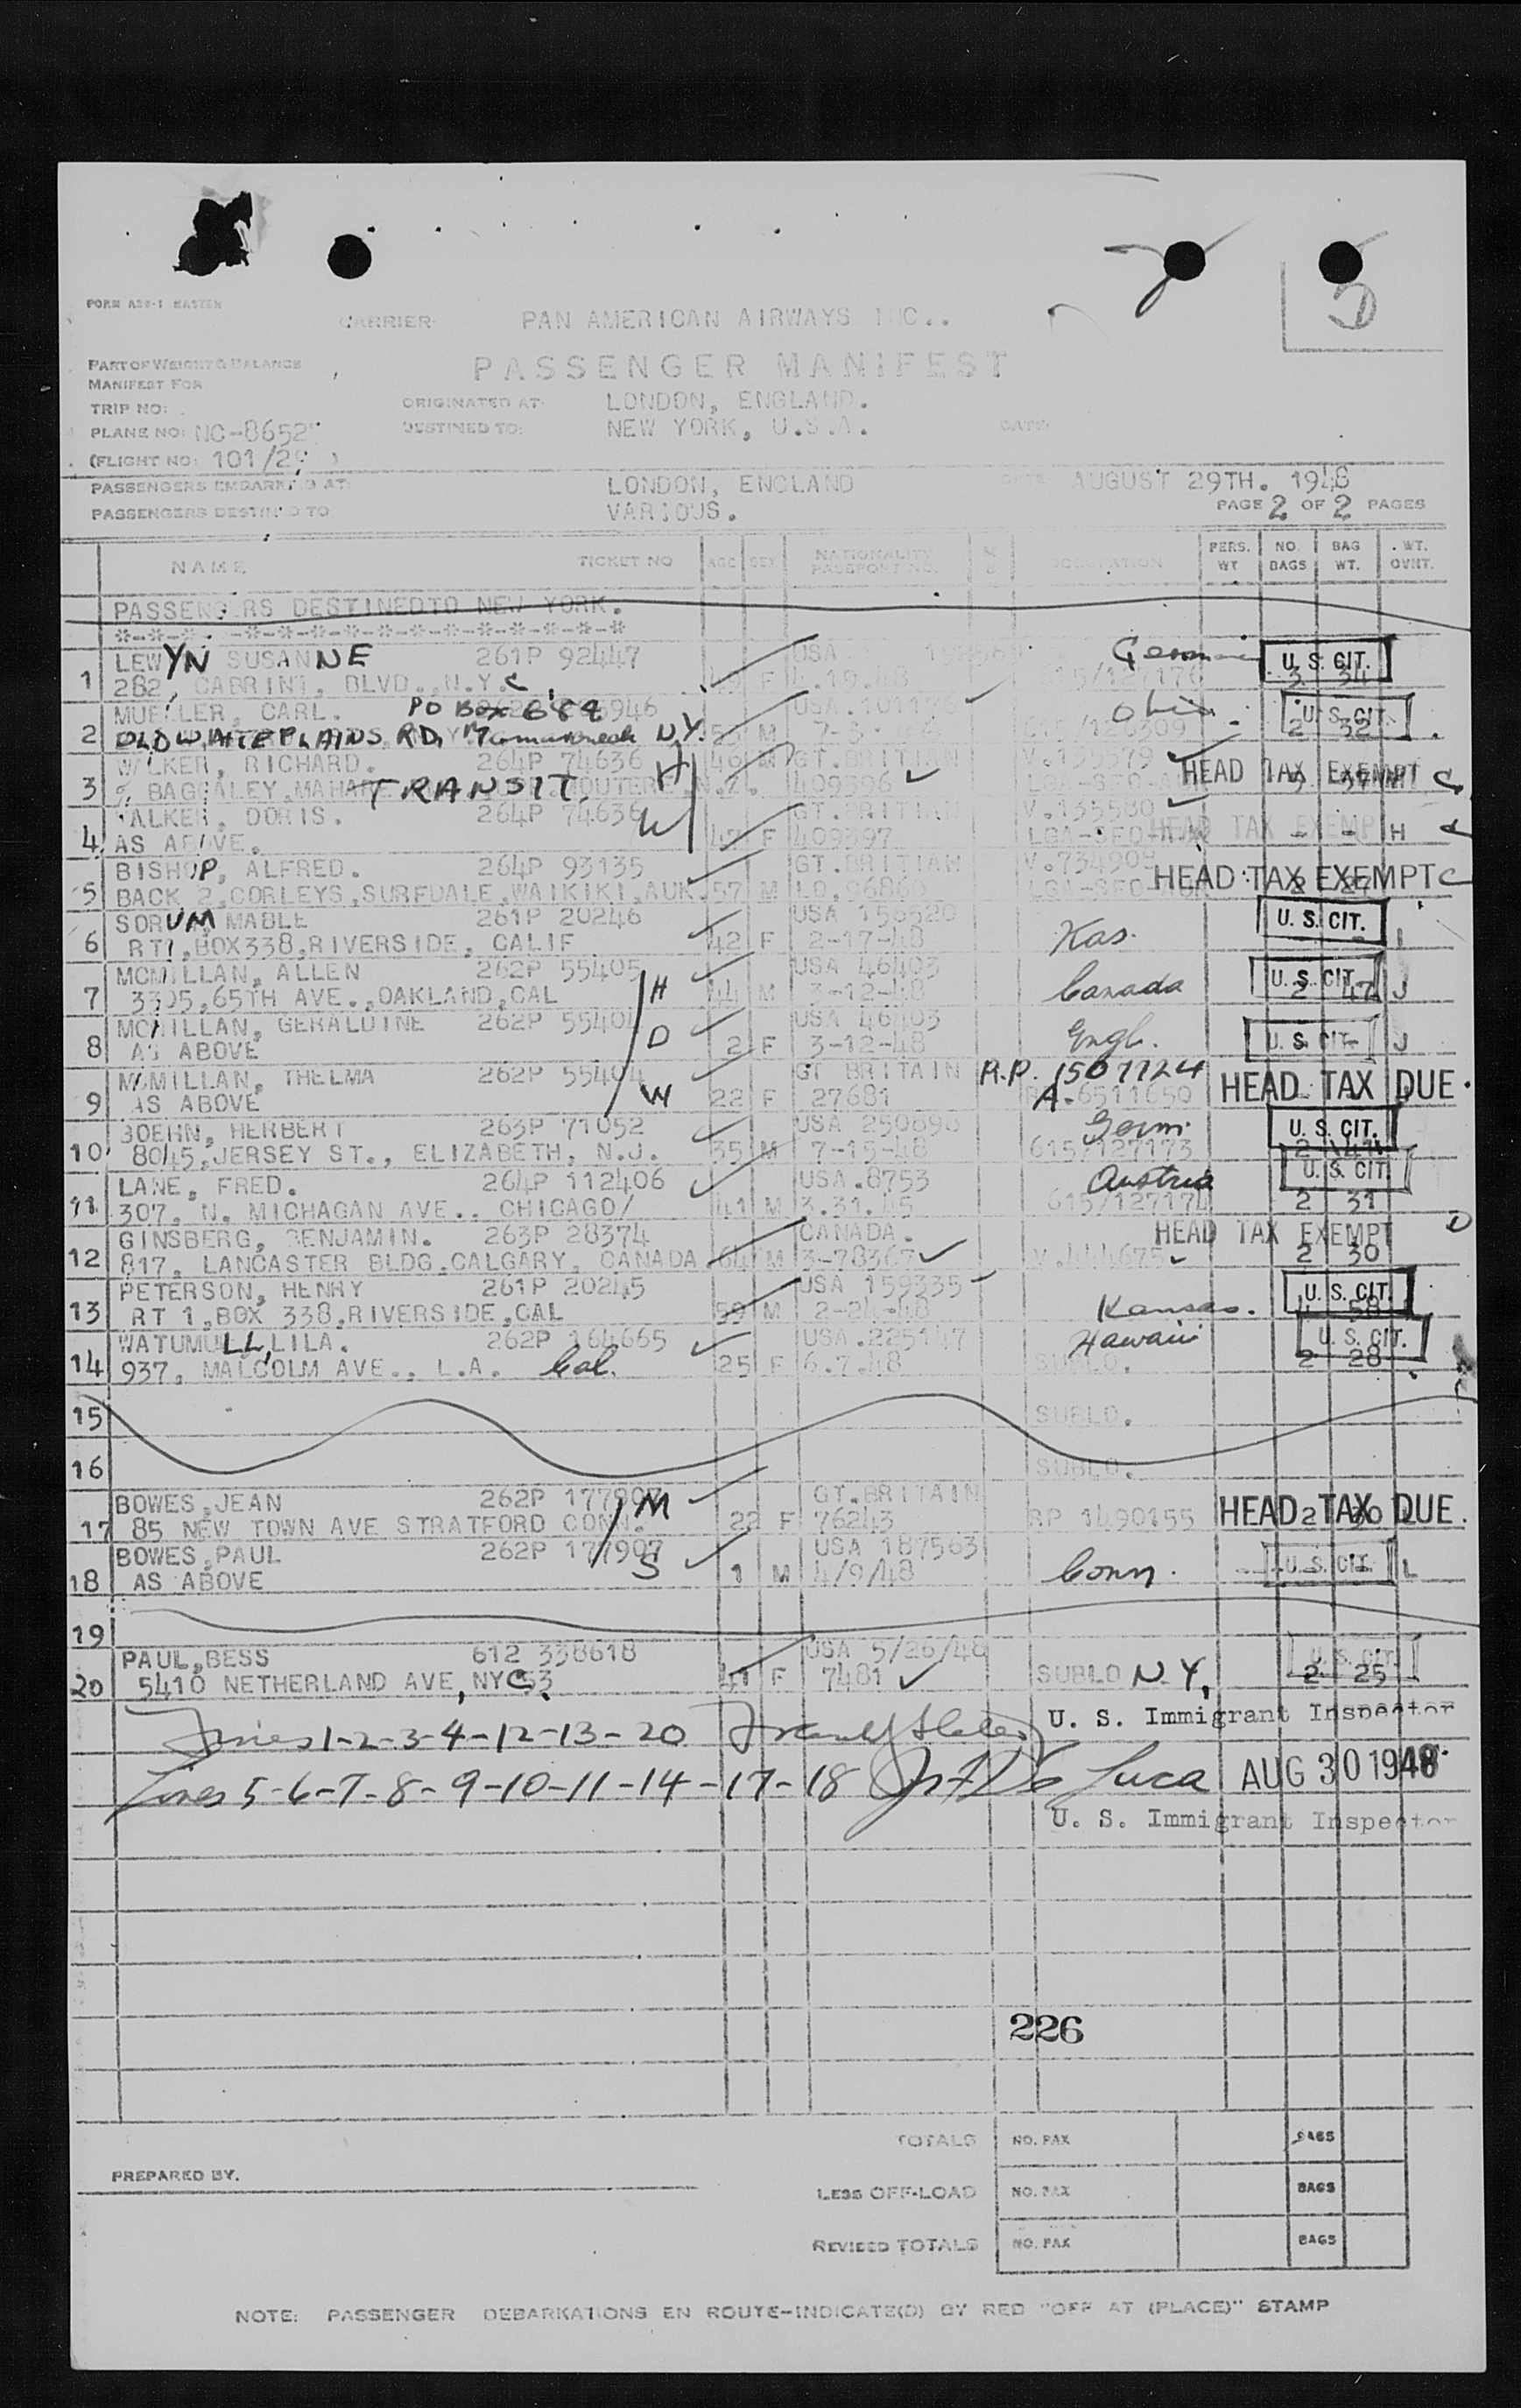 5
FORM
CARRIER PAN AMERICAN AIRWAYS INC..
PART OF WEIGHT & BALANCE
MANIFEST FOR
PASSENGER MANIFEST
TRIP NO: ORIGINATED AT: LONDON, ENGLAND.
PLANE NO: NC-8652 DESTINED TO: NEW YORK, U.S.A. DATE:
(FLIGHT NO: 101/2 )
PASSENGERS EMBARKED AT: LONDON, ENGLAND DATE AUGUST 29TH. 1948
PASSENGERS DESTINED TO VARIOUS. PAGE 2 OF 2 PAGES
NAME TICKET NO AGE SEX NATIONALITY PASSPORT NO. OCCUPATION PERS. WT NO. BAGS BAG WT. WT. OVNT.
PASSENGERS DESTINEDTO NEW YORK.
*-*-*- -*-*-*-*-*-*-*-*-*-*-*-*
LEWYN SUSANNE 261P 92447 USA U. S. CIT.
1 282, CABRINI, BLVD., N.Y.C. F 4.19.48 3 34
MUELLER, CARL. PO Box 688 USA Ohio U. S. CIT.
2 OLD WHITE PLAINS RD, Mamaroneck N.Y. M 2 32
WALKER, RICHARD. 264P 74636 H 46 M GT.BRITIAN V.135579
3 TRANSIT. 409396 HEAD TAX EXEMPT C
WALKER, DORIS. 264P 74636 W GT.BRITIAN V.135580
4 AS ABOVE. 47 F 409397 HEAD TAX EXEMPT - - H
BISHOP, ALFRED. 264P 93135 GT.BRITIAN V.734909
5 BACK 2, CORLEYS, SURFDALE, WAIKIKI, AUK. 57 M HEAD TAX EXEMPT C
SORUM, MABLE 261P 20246 USA 150520 U. S. CIT.
6 RT1, BOX338, RIVERSIDE, CALIF 42 F 2-17-48 Kas.
MCMILLAN, ALLEN 262P 55405 H USA 46403 U. S. CIT.
7 3395, 65TH AVE., OAKLAND, CAL 44 M 3-12-48 Canada 2 47 J
MCMILLAN, GERALDINE 262P 55404 D USA 46403
8 AS ABOVE 2 F 3-12-48 Engl. U. S. CIT. J
MCMILLAN, THELMA 262P 55404 W GT BRITAIN R.P. 1507724
9 AS ABOVE 22 F 27681 A-6511650 HEAD TAX DUE.
BOEHN, HERBERT 263P 71052 USA 250698 Germ. U. S. CIT.
10 8045, JERSEY ST., ELIZABETH, N.J. 35 M 7-15-48 615/127173
LANE, FRED. 264P 112406 USA.8753 Austria U. S. CIT.
11 307, N. MICHAGAN AVE.. CHICAGO/ 41 M 3.31.45 615/127174 2 31
GINSBERG, BENJAMIN. 263P 28374 CANADA. HEAD TAX EXEMPT D
12 817, LANCASTER BLDG. CALGARY, CANADA 64 M 3-78367 V.444675 2 30
PETERSON, HENRY 261P 20245 USA 159335 U. S. CIT.
13 RT 1, BOX 338, RIVERSIDE, CAL 59 M 2-24-48 Kansas. 58
WATUMULL, LILA. 262P 164665 USA.225147 Hawaii U. S. CIT.
14 937, MALCOLM AVE., L.A. Cal. 25 F 6.7.48 SUBLO. 2 28
15 SUBLO.
16 SUBLO.
BOWES, JEAN 262P 177907 M GT.BRITAIN
17 85 NEW TOWN AVE STRATFORD CONN. 22 F 76243 RP 1490155 HEAD TAX DUE.
BOWES, PAUL 262P 177907 S USA 187563
18 AS ABOVE 1 M 4/9/48 Conn. U. S. CIT. L
19
PAUL, BESS 612 338618 USA 5/26/48 U. S. CIT.
20 5410 NETHERLAND AVE, NYC 53 41 F 7481 SUBLO N.Y, 2 25
Lines 1-2-3-4-12-13-20 U. S. Immigrant Inspector
Lines 5-6-7-8-9-10-11-14-17-18 De Luca AUG 30 1948
U. S. Immigrant Inspector
226
TOTALS NO. PAX BAGS
PREPARED BY.
LESS OFF-LOAD NO. PAX BAGS
REVISED TOTALS NO. PAX BAGS
NOTE: PASSENGER DEBARKATIONS EN ROUTE-INDICATE(D) BY RED "OFF AT (PLACE)" STAMP